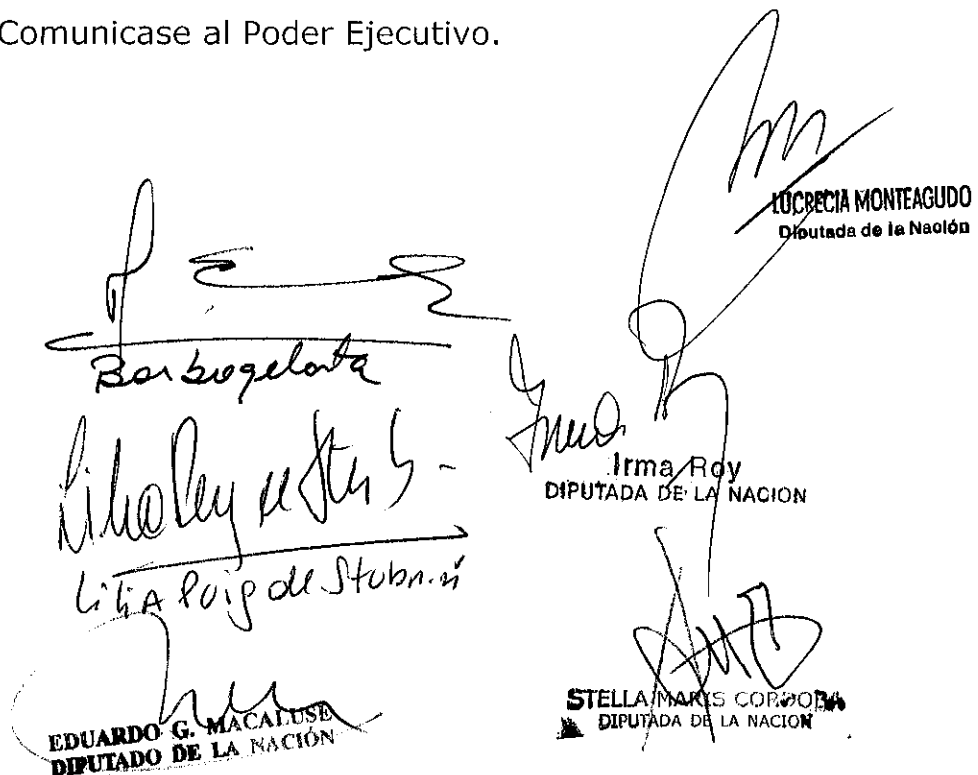 Comunicase al Poder Ejecutivo.
LUCRECIA MONTEAGUDO
Diputada de la Nación
Barbagelata
Irma
Irma Roy
DIPUTADA DE LA NACION
Lilia Puig de Stubrin
Lilia Puig de Stubrin
STELLA MARIS CORDOBA
DIPUTADA DE LA NACION
EDUARDO G. MACALUSE
DIPUTADO DE LA NACIÓN